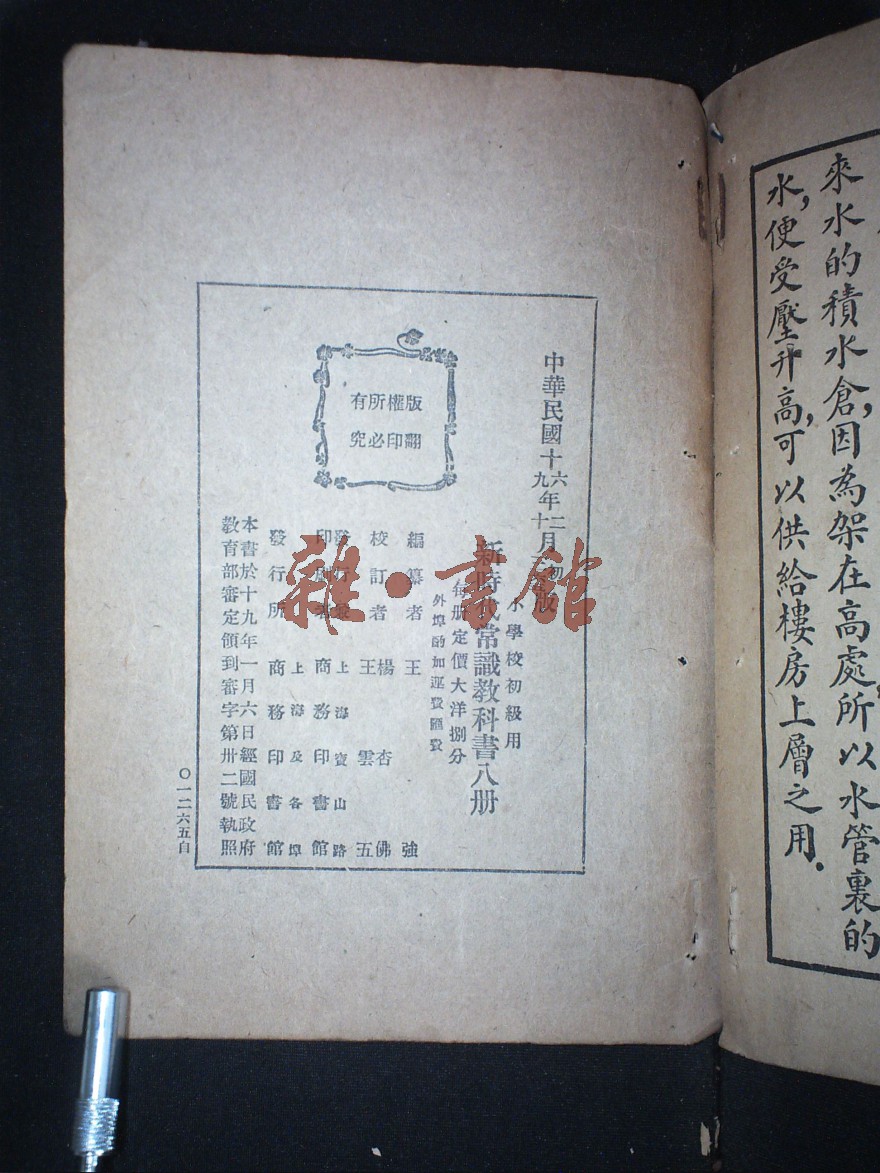 來水的積水倉,因為架在高處所以水管裏的
水,便受壓升高,可以供給樓房上層之用。
中華民國十六年二月初版
九年十月
小學校初級用
新時代常識教科書八册
每册定價大洋捌分
外埠酌加運費匯費
版權所有
翻印必究
編纂者 王強
校訂者 楊杏佛
王雲五
發行 上海寶山路
印刷 商務印書館
發行所 上海及各埠
商務印書館
本書於十九年一月六日經國民政府
教育部審定領到審字第卅二號執照
〇一二六五自
雜·書館